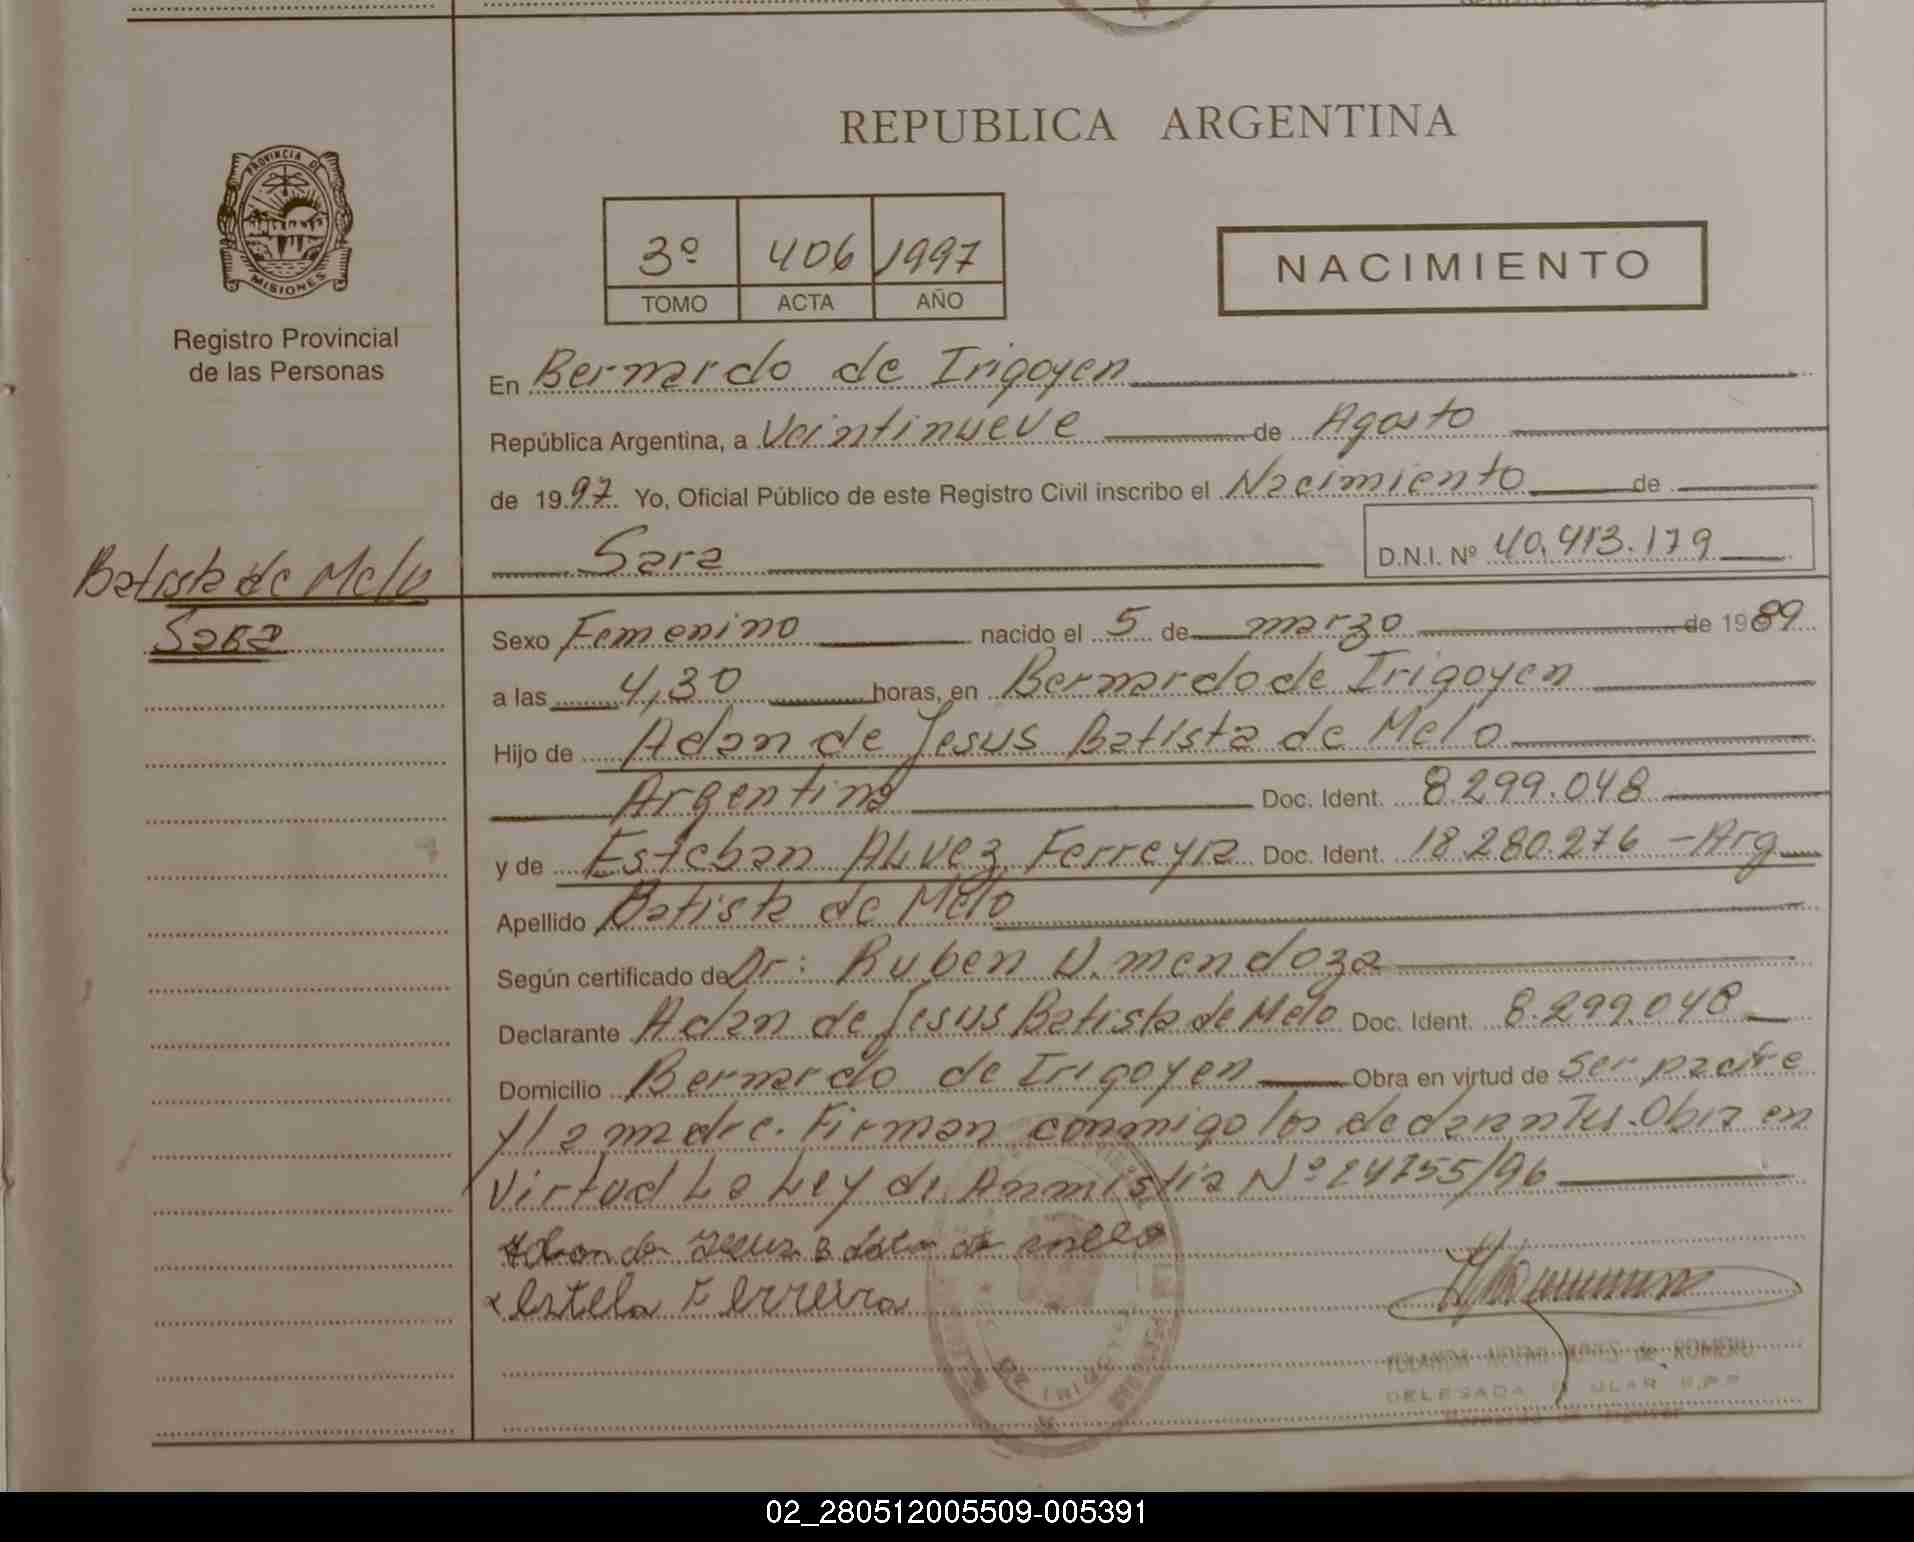 PROVINCIA DE
MISIONES
Registro Provincial
de las Personas
Batista de Melo
Sara
REPUBLICA ARGENTINA
3º 406 1997
TOMO ACTA AÑO
NACIMIENTO
En Bernardo de Irigoyen
República Argentina, a Veintinueve de Agosto
de 1997. Yo, Oficial Público de este Registro Civil inscribo el Nacimiento de
Sara D.N.I. Nº 40.413.179
Sexo Femenino nacido el 5 de marzo de 1989
a las 4,30 horas, en Bernardo de Irigoyen
Hijo de Adan de Jesus Batista de Melo
Argentina Doc. Ident. 8.299.048
y de Esteban Alvez Ferreyra Doc. Ident. 18.280.276 - Arg
Apellido Batista de Melo
Según certificado de Dr: Ruben D. mendoza
Declarante Adan de Jesus Batista de Melo Doc. Ident. 8.299.048
Domicilio Bernardo de Irigoyen Obra en virtud de ser padre
y la madre. Firman conmigo los declarantes. Obra en
Virtud La Ley de Anmistia Nº 24755/96
Adan de Jesus Batista de melo
estela Ferreira
de ROMERO
DELEGADA
02_280512005509-005391